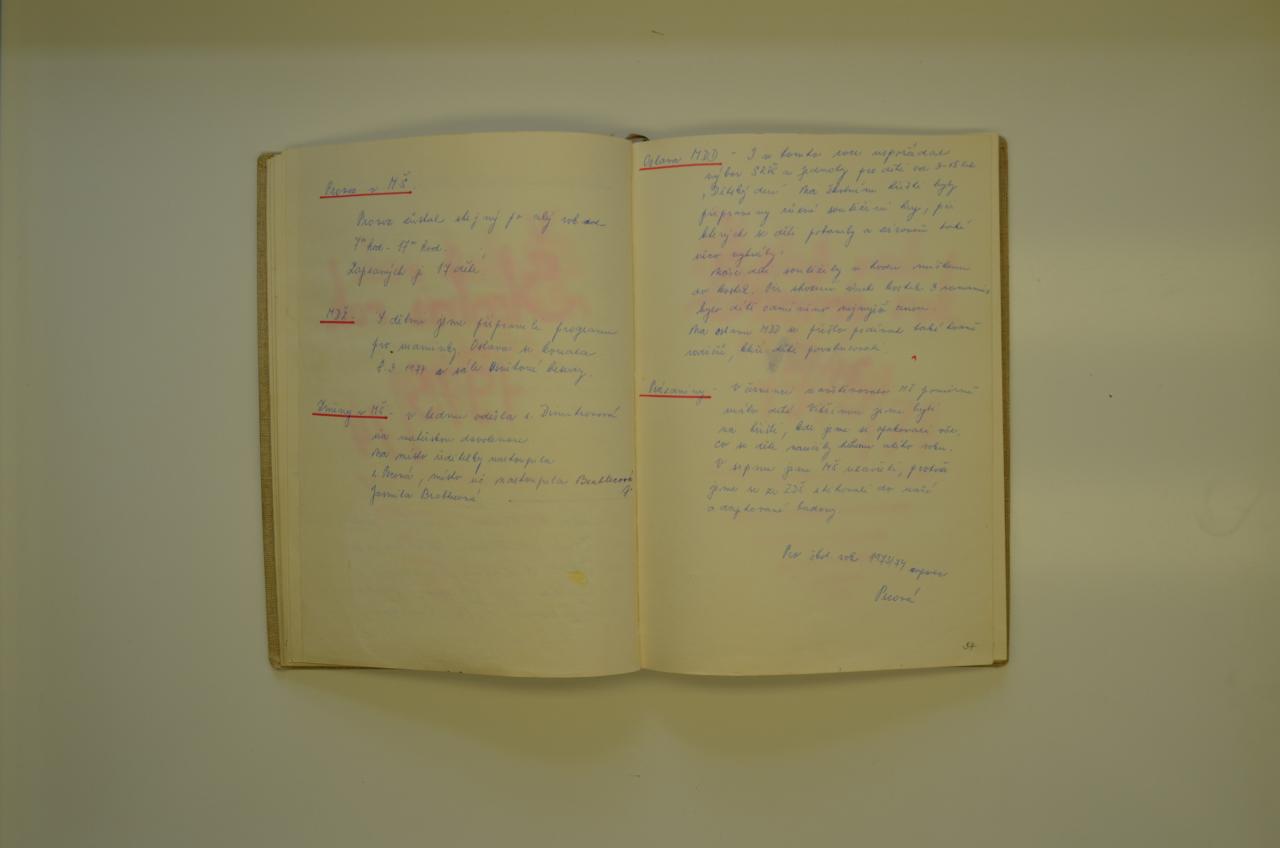 Provoz v MŠ.
Provoz zůstal stejný jako minulý rok od
7 hod - 17 hod.
Zapsaných je 17 dětí
MDŽ. S dětmi jsme připravili program
pro maminky. Oslava se konala
8.3 1974 v sále Osvětové besedy.
Změny v MŠ - v lednu odešla s.
na mateřskou dovolenou
Na místo ředitelky nastoupila
s. Pecová, místo uč nastoupila Brablecová
Jarmila
Oslava MDD - I v tomto roce uspořádal
výbor SRPŠ a jednoty pro děti od 3-15 let
"Dětský den". Na školním hřišti byly
připraveny různé soutěžní hry, při
kterých se děti pobavily a zároveň také
něco vyhrály.
Naše děti soutěžily v hodu míčkem
do kostek. Při shození všech kostek
bylo dítě odměněno nejvyšší cenou.
Na oslavu MDD se přišlo podívat také hodně
rodičů, kteří děti povzbuzovali.
Prázdniny - V červenci navštěvovalo MŠ poměrně
málo dětí. Většinou jsme byli
na hřišti, kde jsme si opakovali vše,
co se děti naučily během celého roku.
V srpnu jsme MŠ uzavřeli, protože
jsme se ze ZDŠ stěhovali do naší
adaptované budovy.
Pro škol. rok 1973/74
Pecová
37